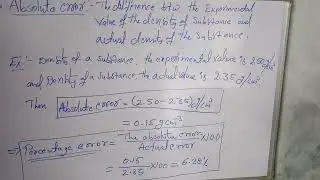 Absolute error :- The difference b/w the Experimental
Value of the density of Substance and
actual density of the Substance.
Ex:- Density of a substance, the experimental value is 2.50 g/cm³
and Density of a substance, the actual value is 2.35 g/cm³
Then Absolute error = (2.50 - 2.35) g/cm³
= 0.15 g cm³
⇒ Percentage error = The absolute error / Actual error × 100
= 0.15 / 2.35 × 100 = 6.38%